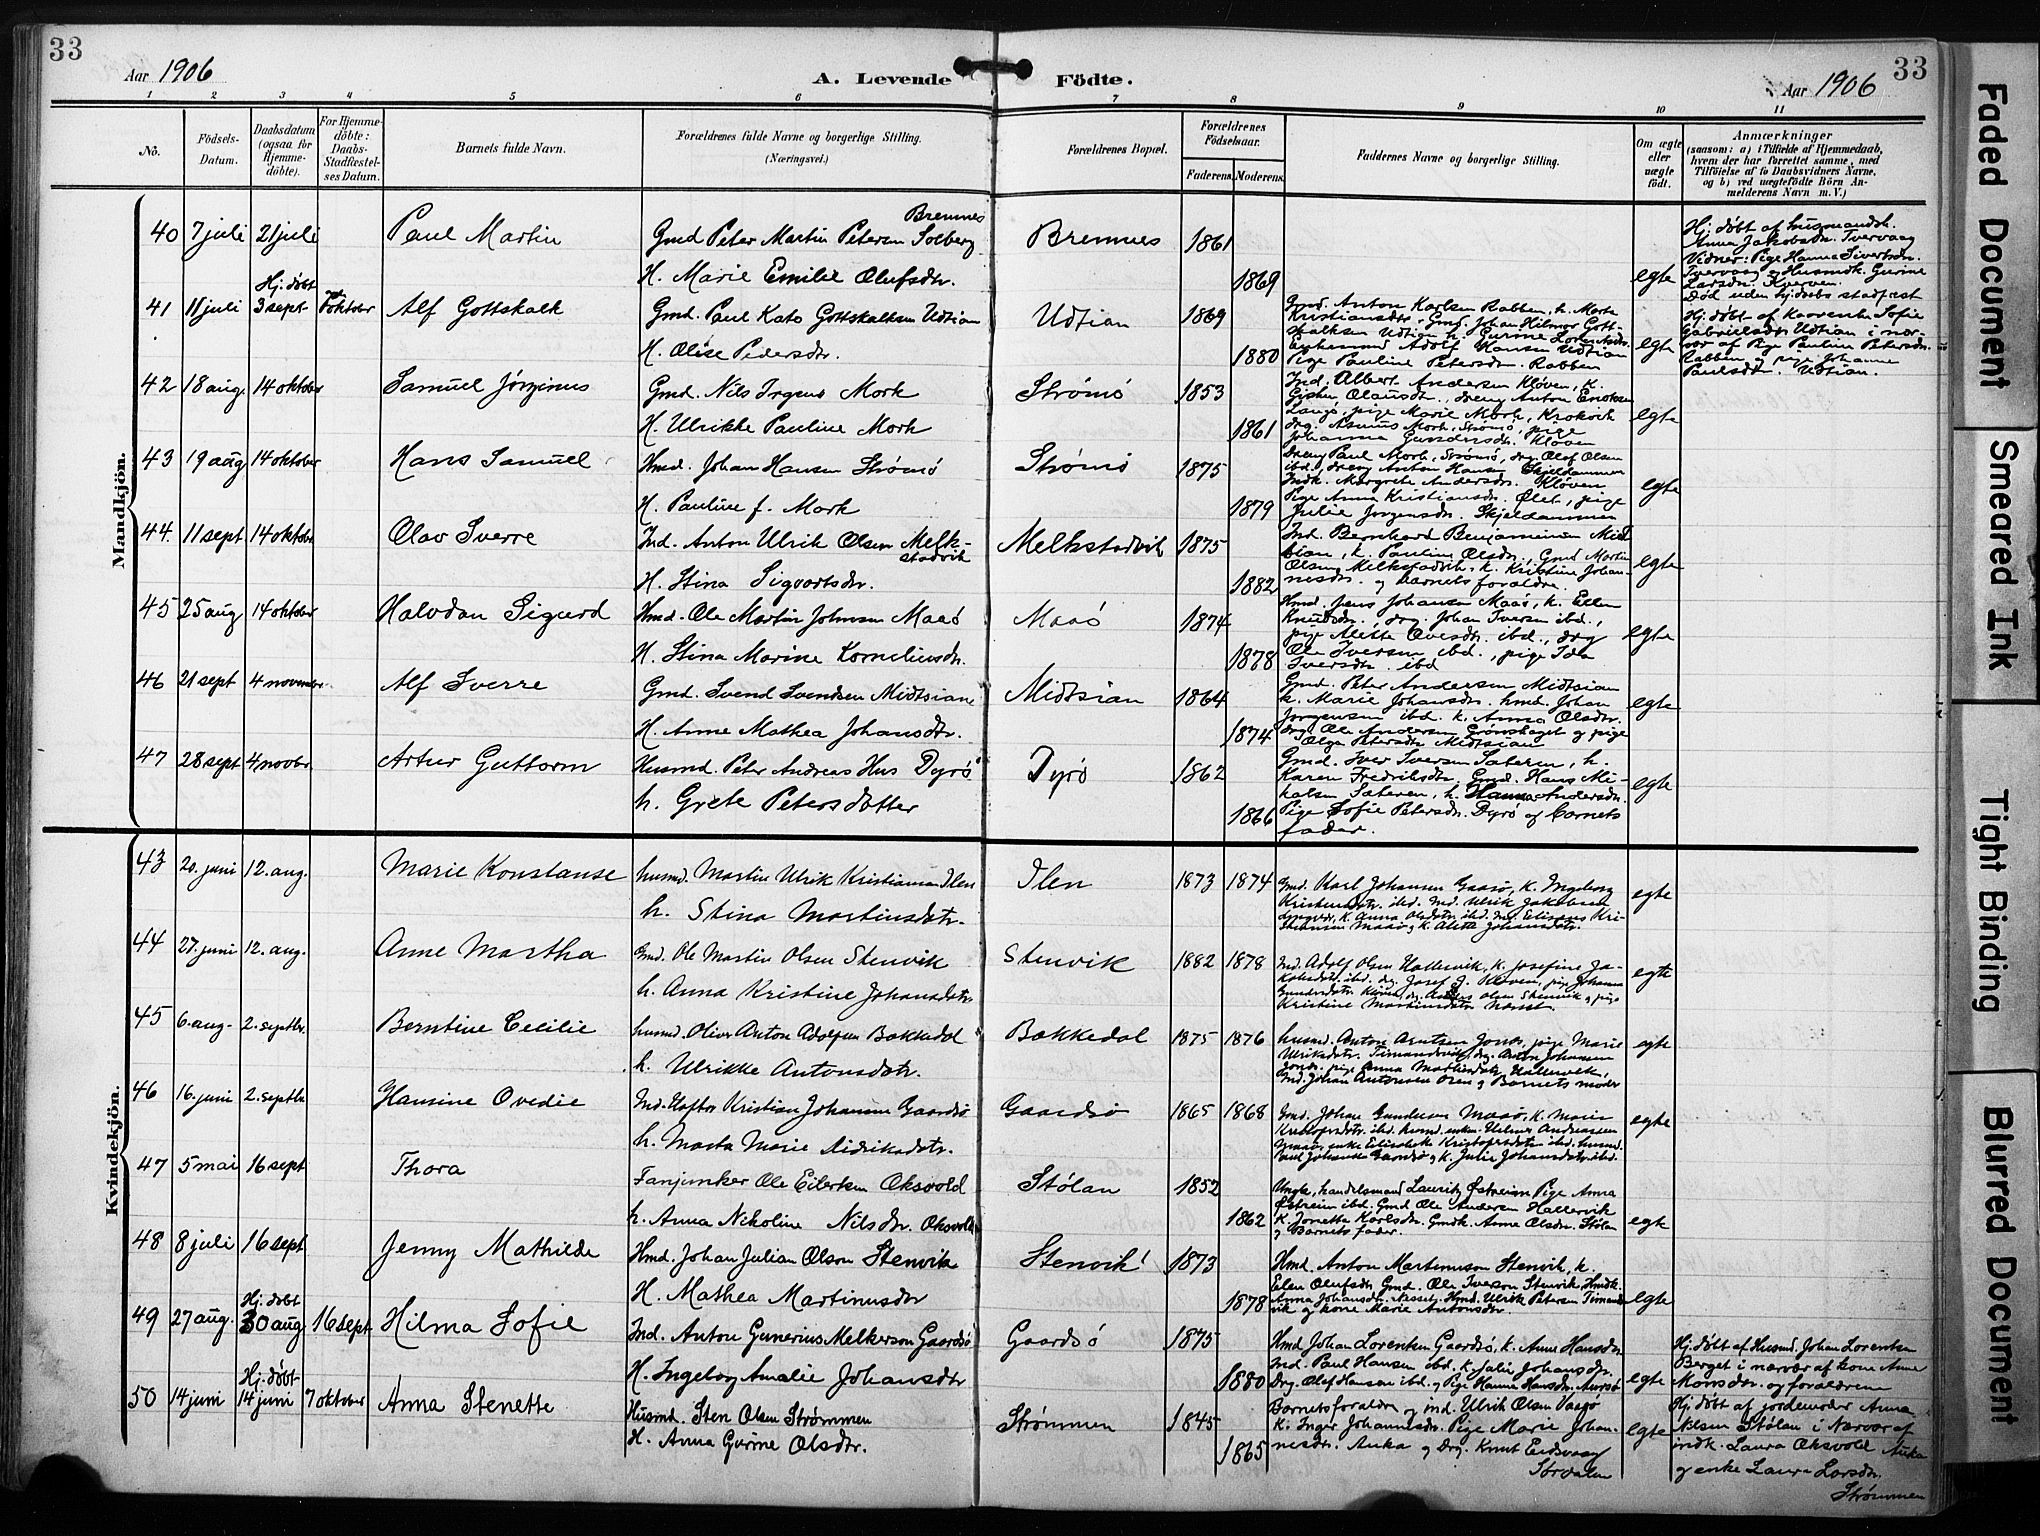 33
Aar 1906
A. Levende Födte.
Aar 1906
33
1 2 3 4 5 6 7 8 9 10 11
No.
Födsels-Datum.
Daabsdatum (ogsaa for Hjemmedöbte).
For Hjemmedöbte: Daabs-Stadfæstelses Datum.
Barnets fulde Navn.
Forældrenes fulde Navne og borgerlige Stilling. (Næringsvei.)
Forældrenes Bopæl.
Forældrenes Födselsaar.
Faderens. Moderens.
Faddernes Navne og borgerlige Stilling.
Om ægte eller uægte födt.
Anmærkninger
(saasom: a) i Tilfælde af Hjemmedaab, hvem der har forrettet samme, med Tilföielse af to Daabsvidners Navne, og b) ved uægtefödte Börn Anmelderens Navn m. V.)
Mandkjön.
40 7 juli 21 juli Paul Martin
Gmd Peter Martin Petersen Solberg Bremnes
H. Marie Emilie Olufsdtr.
Bremnes 1861 1869 egte
Hj. døbt af husmandsk.
Anna Jakobsdtr. Tvervaag
Vidner: Pige Hanna Sivertsdtr.
Tvervaag og Husmdk. Gurine
Larsdtr. Kverven.
Død uden hj. daabs stadfæst
41 11 juli Hj. døbt 3 sept oktober Alf Gottskalk
Gmd. Paul Kato Gottskalksen Udtian
H. Olise Pedersdtr.
Udtian 1869 1880
Gmd. Anton Karlsen Rabben, k. Marta
Kristiansdtr. Gmd. Johan Hilmar Gott-
skalksen Udtian, k. Gurine Lorentsdtr.
Enkemand Adolf Hansen Udtian
Pige Pauline Petersdtr. Rabben
egte
Hj. døbt af Sofie
Gabrielsdtr Udtian i nær-
vær af Pige Pauline Petersdtr.
Rabben og pige Johanna
Paulsdtr. Udtian.
42 18 aug. 14 oktober Samuel Jørginus
Gmd. Nils Irgens Mork
H. Ulrikke Pauline Mork
Strømø 1853 1861
Ind. Albert Andersen Kløven, k.
Olausdtr., dreng Anton Enoksen
Langø, pige Marie Mork, Krokvik
drg. Asmus Mork, Strømø, pige
Johanna Gundersdtr. Kløven
egte
43 19 aug 14 oktober Hans Samuel
Hmd. Johan Hansen Strømø
H. Pauline f. Mork
Strømø 1875 1879
Dreng Paul Mork, Strømø, drg. Olaf Olsen
ibd, dreng Anton Hansen Skjeldammen
Indk. Margrete Andersdtr. Kløven
Pige Anna Kristiansdtr. Ølet, pige
Julie Jørgensdtr. Skjeldammen
egte
44. 11 sept 14 oktober Olav Sverre
Ind. Anton Ulrik Olsen Melk-
stadvik
H. Stina Sigvartsdtr.
Melkstadvik 1875 1882
Ind. Bernhard Benjaminsen Midt
sian, k. Pauline Olsdtr., Gmd Martin
Olsen Melkstadvik, k. Kristine Johan-
nesdtr. og barnets forældre.
egte
45 25 aug 14 oktober Halvdan Sigurd
Hmd. Ole Martin Johnsen Maasø
H. Stina Marine Korneliusdtr.
Maasø 1874 1878
Hmd. Jens Johansen Maasø, k. Ellen
Knudsdtr., drg. Johan Iversen ibd.,
pige Alette Ovesdtr. ibd., drg
Ole Iversen ibd., pige Ida
Iversdtr. ibd
egte
46 21 sept 4 novembr. Alf Sverre
Gmd. Svend Svendsen Midtsian
H. Anne Mathea Johansdtr.
Midtsian 1864 1874
Gmd. Peter Andersen Midtsian
k. Marie Johansdtr. hmd. Johan
Jørgensen ibd. k. Anna Olsdtr.
drg. Ole Andersen Grønshaget og pige
Olga Petersdtr Midtsian
egte
47 28 sept 4 novbr. Artur Guttorm
Husmd. Peter Andreas Hus Dyrø
h. Grete Petersdatter
Dyrø 1862 1866
Gmd. Iver Iversen Sæteren, k.
Karen Fredriksdtr. Gmd. Hans Mi-
kalsen Sæteren, k. Hanna Andersdtr.
Pige Sofie Petersdtr. Dyrø og barnets
fader.
egte
Kvindekjön.
43 20. juni 12. aug. Marie Konstanse
husmd. Martin Ulrik Kristiansen Ilen
h. Stina Martinsdatr.
Ilen 1873 1874
Gmd. Karl Johansen Gaasø, k. Ingeborg
Kristensdatr. ibd. Ind. Ulrik Jakobsen
k. Anna Olsdatr. ibd. Ind. Kri-
stiansen Maasø og k. Alette Johansdatr.
egte
44 27. juni 12. aug. Anne Martha
Gmd. Ole Martin Olsen Stenvik
h. Anna Kristine Johansdatr.
Stenvik 1882 1878
Ind. Adolf Olsen Hallervik, k. Josefine Ja-
kobsdatr. ibd. drg. Josef J. Kløven, pige Johanna
Gundersdatr. Kløven, drg. Olsen Stenvik og pige
Kristine Martinsdatr.
egte
45 6. aug. 2. septbr. Berntine Cecilie
husmd. Oliver Anton Adolfsen Bakkedal
h. Ulrikke Antonsdatr.
Bakkedal 1875 1876
husmd. Anton Arntsen, pige Marie
Ulriksdatr. Timandsvik, drg. Anton Johansen
pige Anna Martinsdatr. Hallervik,
Ind. Johan Antonsen og Barnets moder
egte
46 16. juni 2. septbr. Hansine Ovedie
Ind. Haftor Kristian Johansen Gaardsø
h. Marta Marie Didriksdatr.
Gaardsø 1865 1868
Gmd. Johan Gundersen Maasø, k. Marie
Kristofersdatr. ibd. husmd. enkem. Helmer Andreassen
Maasø, enke Elisabeth Kristofersdatr ibd. husmd.
Paul Johansen Gaardsø og k. Julie Johansdatr. ibd.
egte
47 5 mai 16 sept Thora
Fanjunker Ole Eilertsen Oksvold
h. Anna Nikoline Nilsdtr. Oksvold
Stølan 1852 1862
Ungk., handelsmand Lauritz Østreim Pige Anna
Østreim ibd. Gmd Ole Andersen Hallervik
k. Jonette Karlsdtr. Gmdk. Anna Olsdtr. Stølan
og Barnets fader.
egte
48 8 juli 16 sept Jenny Mathilde
Hmd. Johan Julian Olsen Stenvik
H. Mathea Martinusdtr
Stenvik 1873 1878
Hmd. Anton Martinussen Stenvik, k.
Elen Olufsdtr Gmd. Ole Iverson Stenvik, Hmdk.
Anna Johansdtr. Nesset, Hmd. Ulrik Petersen Timands
vik og kone Marie Antonsdtr.
egte
49 27 aug. Hj. døbt 30 aug 16 sept Hilma Sofie
Ind. Anton Gunerius Melkerson Gaardsø
H. Ingeborg Amalie Johansdtr
Gaardsø 1875 1880
Hmd Johan Lorentsen Gaardsø, k. Anne Hansdtr
Ind. Paul Hansen ibd. k. Julie Johansdtr.
Drg. Olaf Hansen ibd. og Pige Hanna Hansdtr. Aursø
egte
Hj. døbt af Husmd. Johan Lorentsen
Berget i nærvær af kone Anne
Monsdtr. og forældrene
50 14 juni Hj. døbt 14 juni 7 oktober Anna Stenette
Husmd. Sten Olsen Strømmen
H. Anna Gurine Olsdtr.
Strømmen 1845 1865
Barnets forældre og ind. Ulrik Olsen Vaagø
k. Inger Johannesdtr. Pige Marie Johan-
nesdtr. Auka og Drg. Knut Eidsvaag
Sørdalen
egte
Hj. døbt af jordemoder Anna
Nilsen Stølan i Nærvær af
indk. Laura Oksvold Auka
og enke Laura Larsdtr.
Strømmen
Faded Document
Smeared Ink
Tight Binding
Blurred Document